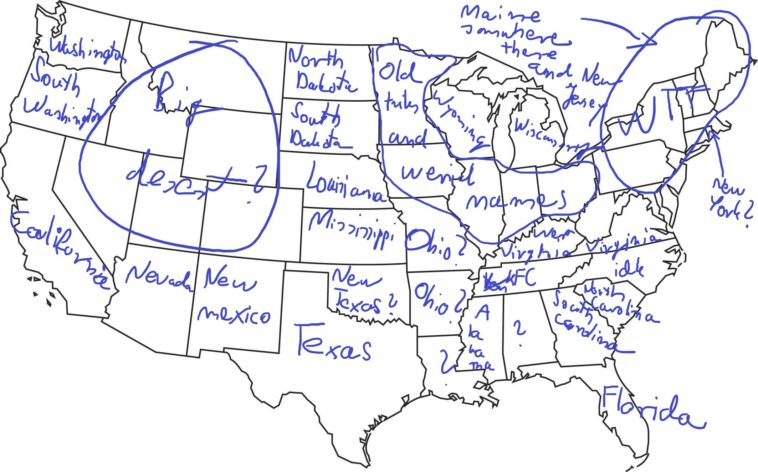 Maine
somwhere
there
and New
Jersey
Washington
South
Washington
Big
desert?
North
Dakota
South
Dakota
Louisiana
Mississippi
Old
tuly
and
weird
names
Wyoming
Wiscansin
WTF
New
York?
California
Nevada
New
mexico
New
Texas?
Texas
Ohio?
Ohio?
?
West
Virginia
Virginia
idk
KFC
A
la
ba
ma
?
North
Carolina
South
Carolina
Florida